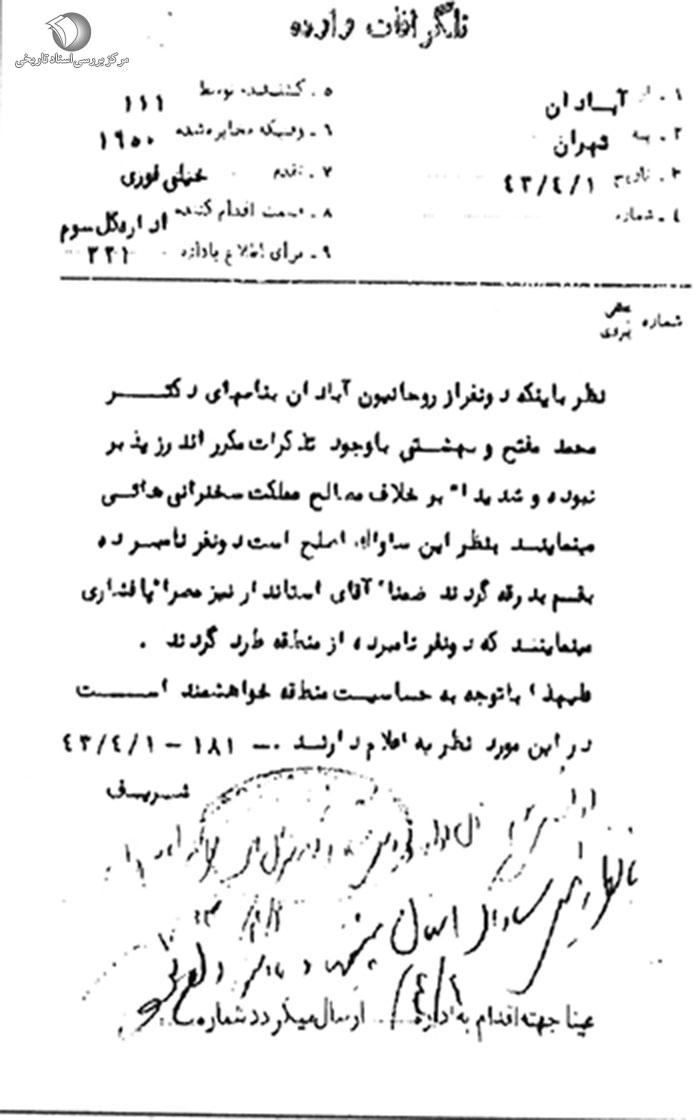 مرکز بررسی اسناد تاریخی
تلگرافات وارده
۱ - از آبادان
۲ - به تهران
۳ - تاریخ ۴۳/۴/۱
۴ - شماره
۵ - کشف شده توسط ۱۱۱
۶ - وقیکه مخابره شده ۱۹۵۰
۷ - تقدم خیلی فوری
۸ - قسمت اقدام کننده اداره کل سوم
۹ - برای اطلاع باداره ۲۲۱
شماره
نظر باینکه دونفر از روحانیون آبادان بنامهای دکتر
محمد مفتح و بهشتی باوجود تذکرات مکرر اندرز پذیر
نبوده و شدیداً بر خلاف مصالح مملکت سخنرانی هائی
مینمایند بنظر این ساواک اصلح است دونفر نامبرده
بقم بدرقه گردند ضمناً آقای استاندار نیز مصراً پافشاری
مینمایند که دونفر نامبرده از منطقه طرد گردند .
علیهذا باتوجه به حساسیت منطقه خواهشمند است
در این مورد نظریه اعلام دارند .– ۱۸۱ – ۴۳/۴/۱
شریف
ساواک استان
۴/۲
عینا جهته اقدام به اداره ..... ارسال میگردد شماره .....